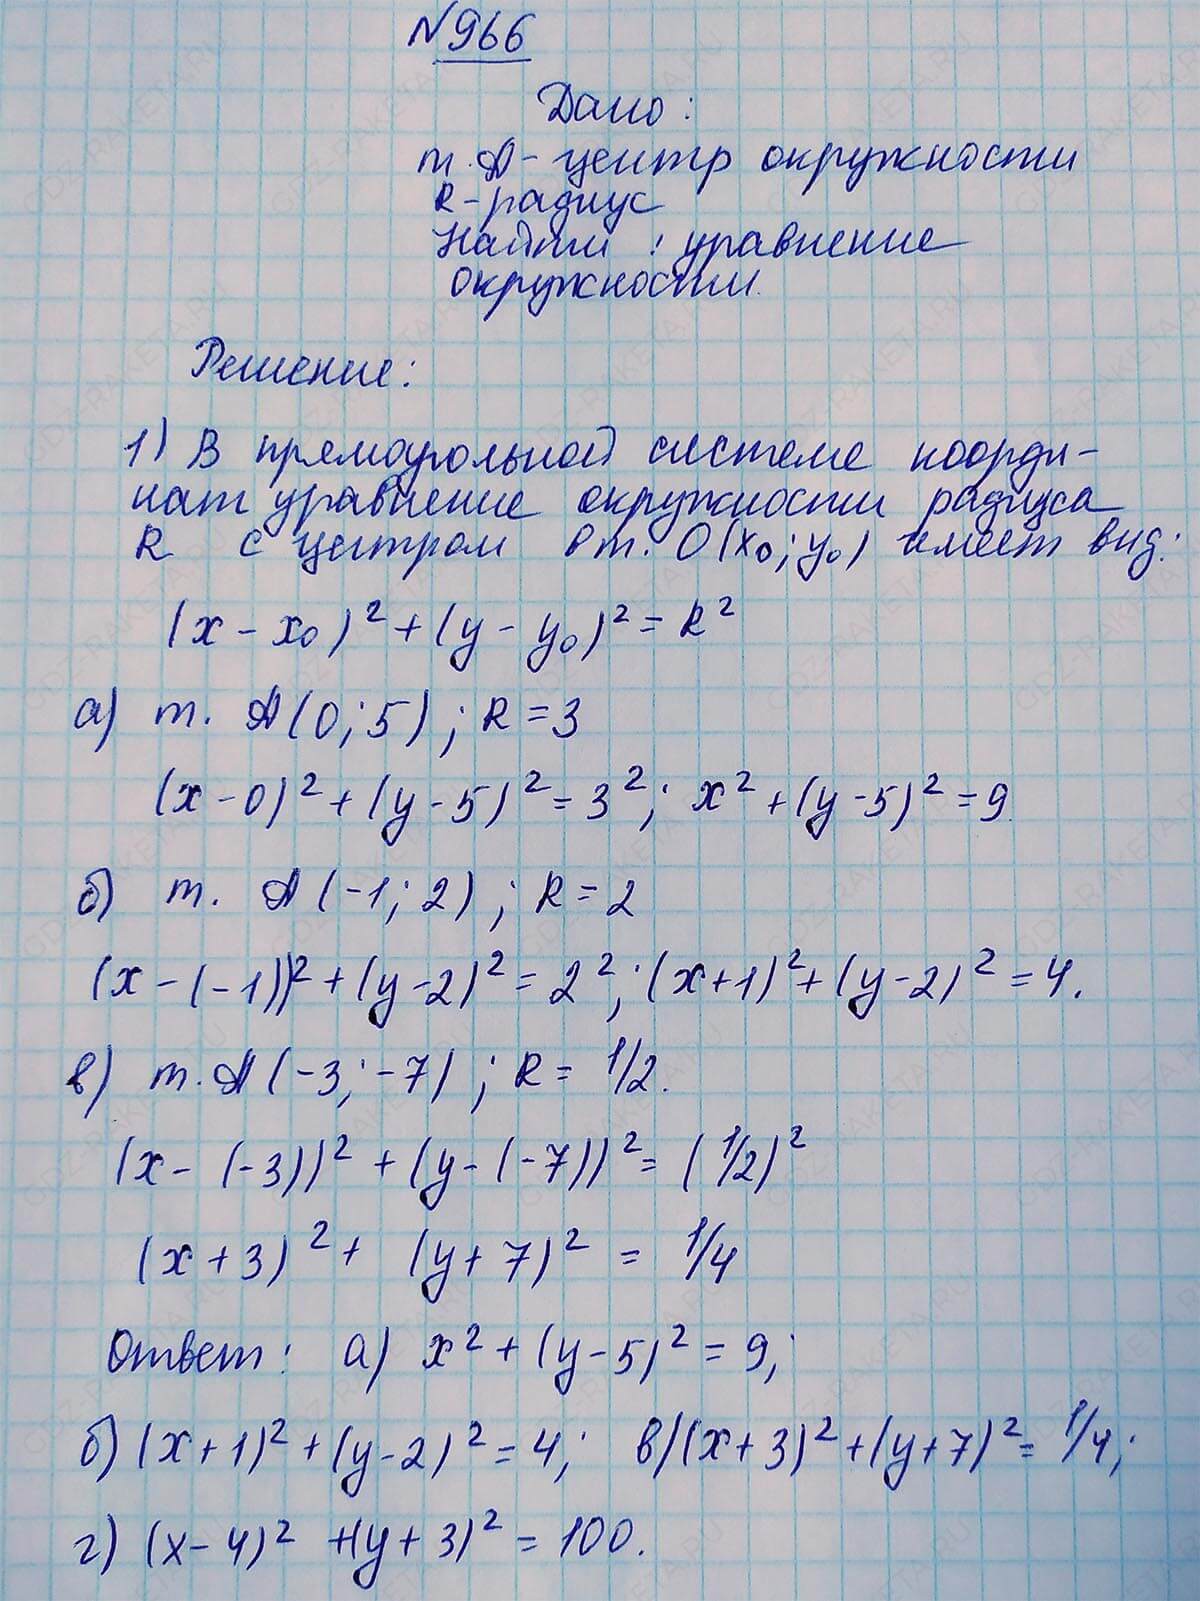 N966
Дано:
т. А - центр окружности
R - радиус
Найти : уравнение
окружности.
Решение:
1) В прямоугольной системе коорди-
нат уравнение окружности радиуса
R с центром в т. O(x₀; y₀) имеет вид:
(x - x₀)² + (y - y₀)² = R²
а) т. А(0; 5) ; R = 3
(x - 0)² + (y - 5)² = 3²; x² + (y - 5)² = 9
б) т. А(-1; 2) ; R = 2
(x - (-1))² + (y - 2)² = 2²; (x + 1)² + (y - 2)² = 4.
в) т. А(-3; -7) ; R = 1/2.
(x - (-3))² + (y - (-7))² = (1/2)²
(x + 3)² + (y + 7)² = 1/4
Ответ: а) x² + (y - 5)² = 9;
б) (x + 1)² + (y - 2)² = 4; в) (x + 3)² + (y + 7)² = 1/4;
г) (x - 4)² + (y + 3)² = 100.
GDZ-RAKETA.RU